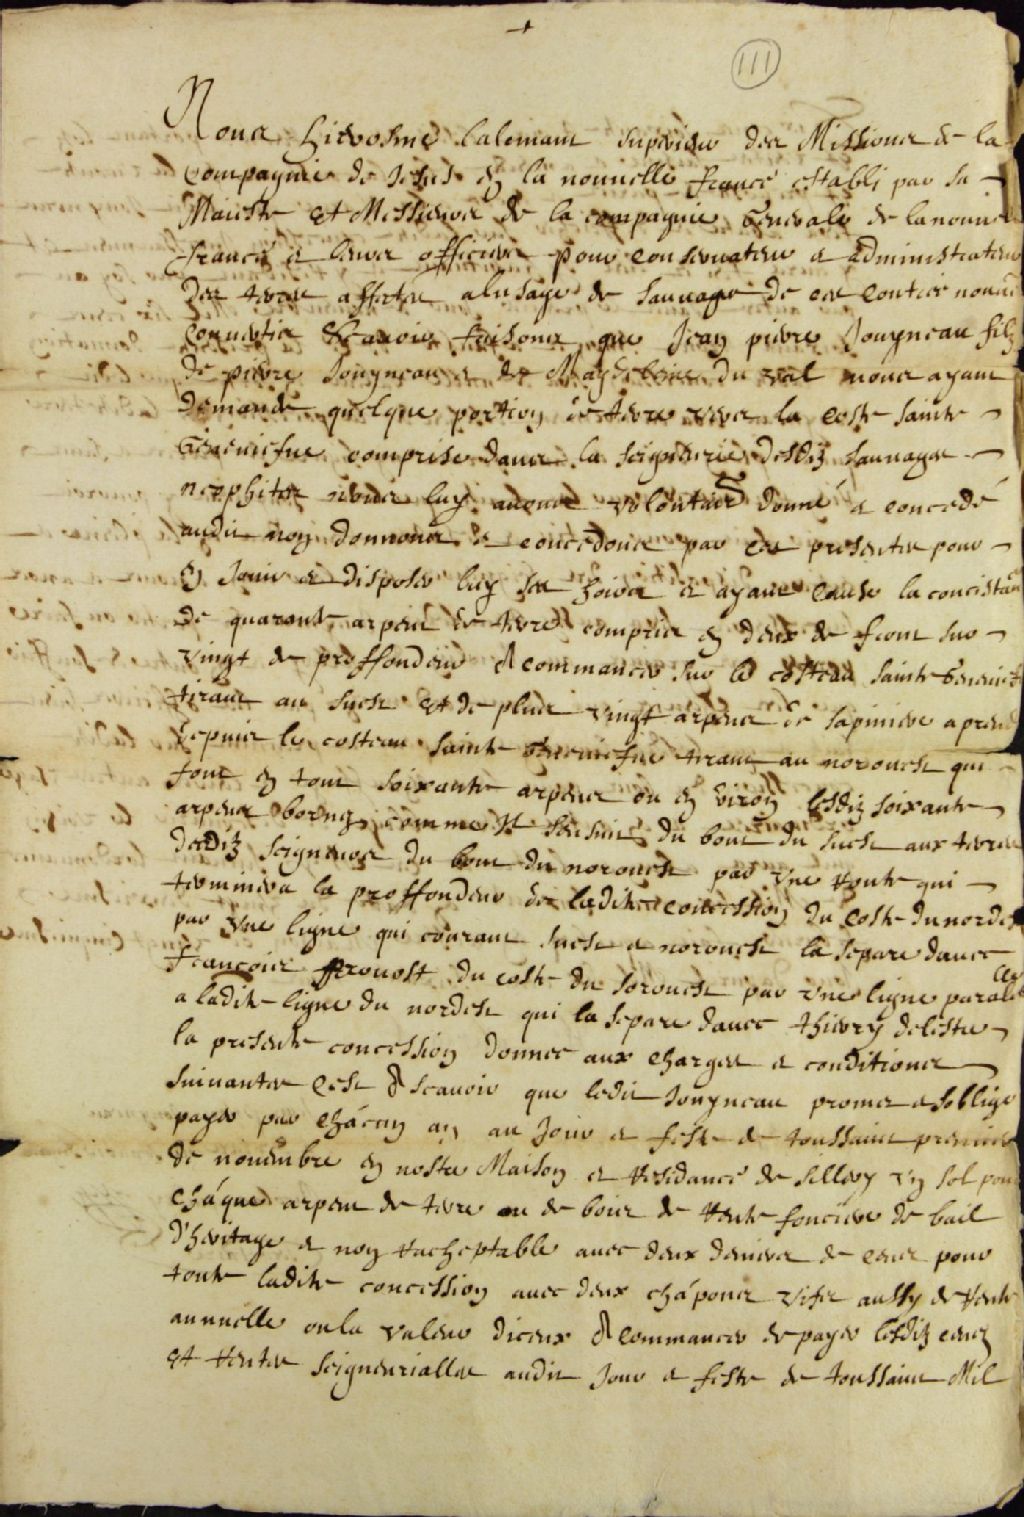 +
111
Nous Hierosme Lalemant superieur des Missions de la
compagnie de Jesus en la nouuelle france establi par sa
Maieste et Messieurs de la compagnie Generale de la nouue
france et leurs officiers pour conseruateur et administrateur
des terres affectes a lusage de sauuages de ces contrees nouue
conuertis scauoir faisons que Jean pierre Jouyneau filz
de pierre Jouyneau et de Magdeleine du val nous ayant
demande quelque portion de terre vers la coste sainte
Geneuiefue comprise dans la seigneurie desditz sauuages
neophites nous luy auons volontiers donné et concedé
audit nom donnons et concedons par ces presentes pour
en Jouir et disposer luy ses hoirs et ayans cause la concistan
de quarante arpens de terre compris en deux de front sur
vingt de proffondeur a commancer sur le costeau sainte Geneuief
tirant au suest et de plus vingt arpens de sapiniere a prend
depuis le costeau sainte Geneuiefue tirant au norouest qui
font en tout soixante arpens ou en viron lesditz soixante
arpens bornez comme il sensuit du bout du suest aux terres
desditz seigneurs du bout du norouest par vne route qui
terminera la proffondeur de ladite concession du coste du nordest
par vne ligne qui courant suest et norouest la separe dauec
françois prouost du coste du sorouest par vne ligne paralelle
a ladite ligne du nordest qui la separe dauec thierry delestre
la presente concession donnee aux charges et conditions
suiuantes cest a scauoir que ledit Jouyneau promet et soblige
payer par chacun an au Jour et feste de toussaint premier
de nouembre en nostre Maison et residance de sillery vn sol pour
cháque arpent de terre ou de bois de rente fonciere de bail
d'heritage et non racheptable auec deux deniers de cens pour
toute ladite concession auec deux chápons vifs aussy de rente
annuelle ou la valeur diceux a commancer de payer lesditz cens
et rentes seigneurialles audit Jour et feste de toussaint Mil